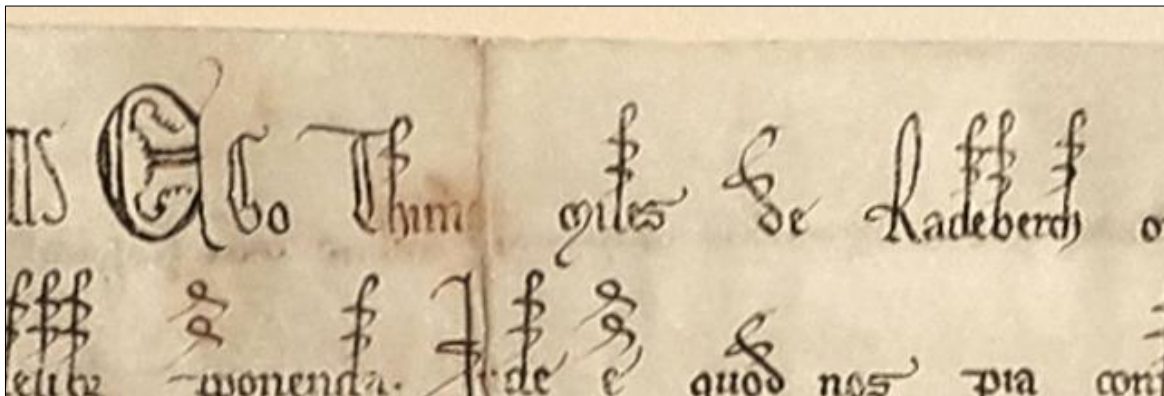 Ego Thimo miles de Radeberch
ponenda. Inde e quod nos pia